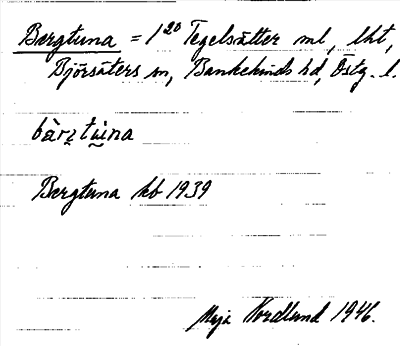 Bergtuna = 1²⁰ Tegelsätter ml, lht,
Björsäters sn, Bankekinds hd, Östg. l.
bàrʐtùna
Bergtuna kb 1939
Maja Nordlund 1946.